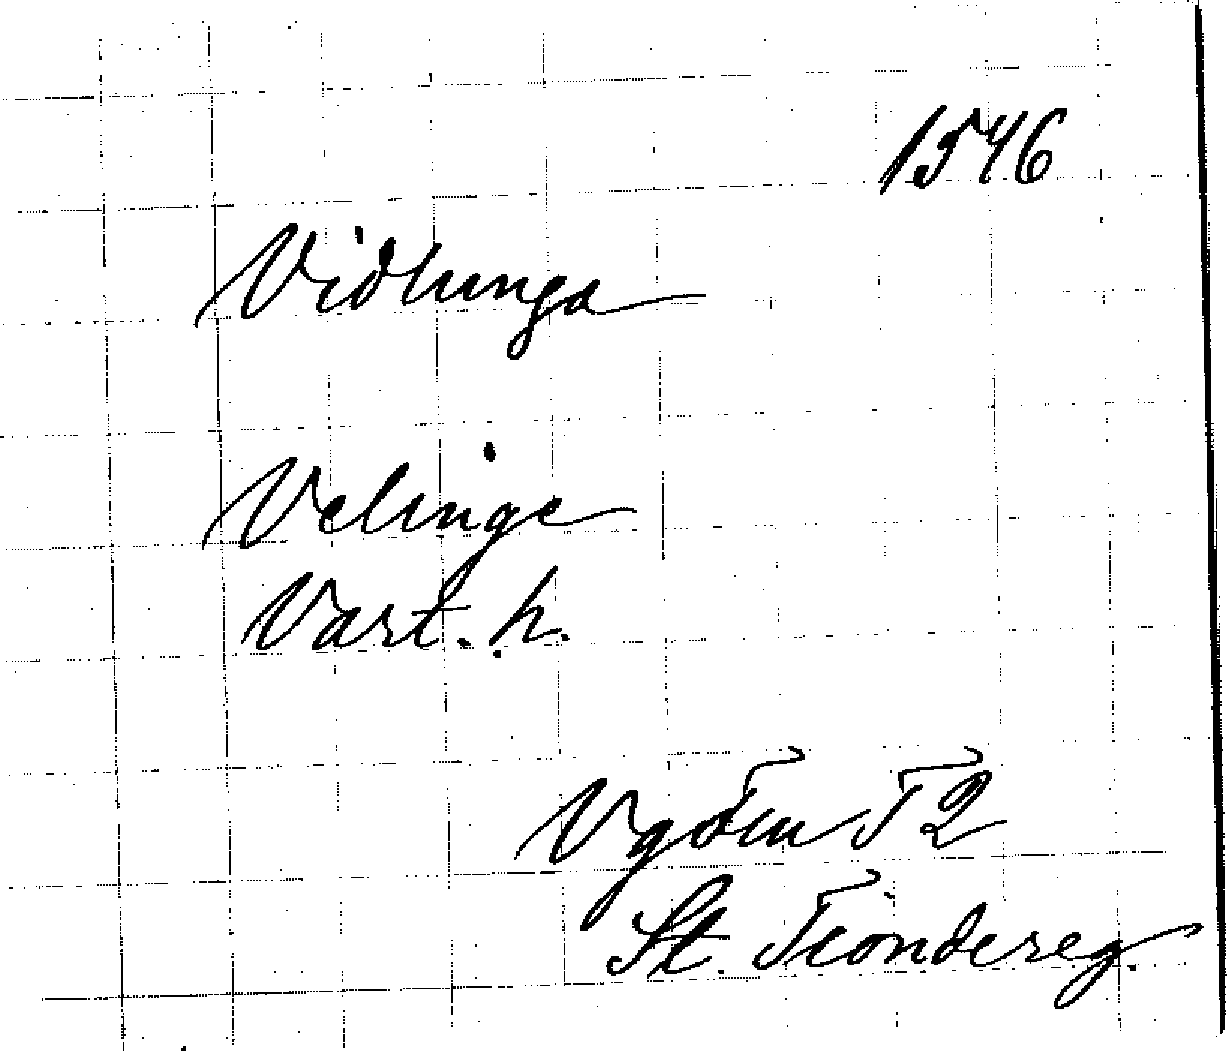 1546
Vidlunga
Velinge
Vart. h.
T2
St. Tiondereg.